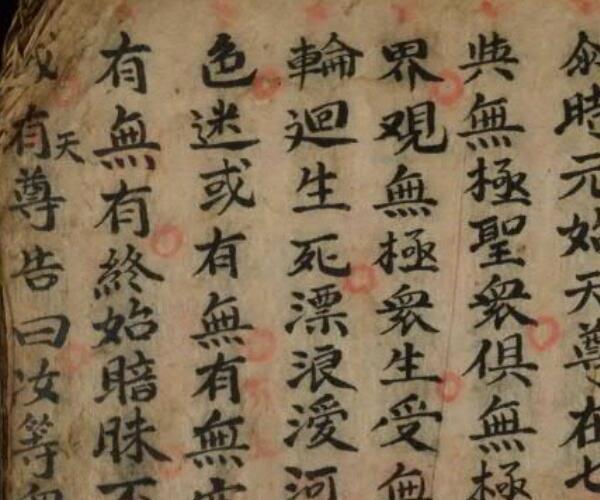 尒時元始天尊在七
與無極聖衆俱無極
界觀無極衆生受無
輪迴生死漂浪愛河
色迷或有無有無
有無有終始暗昧不
有天尊告曰汝等